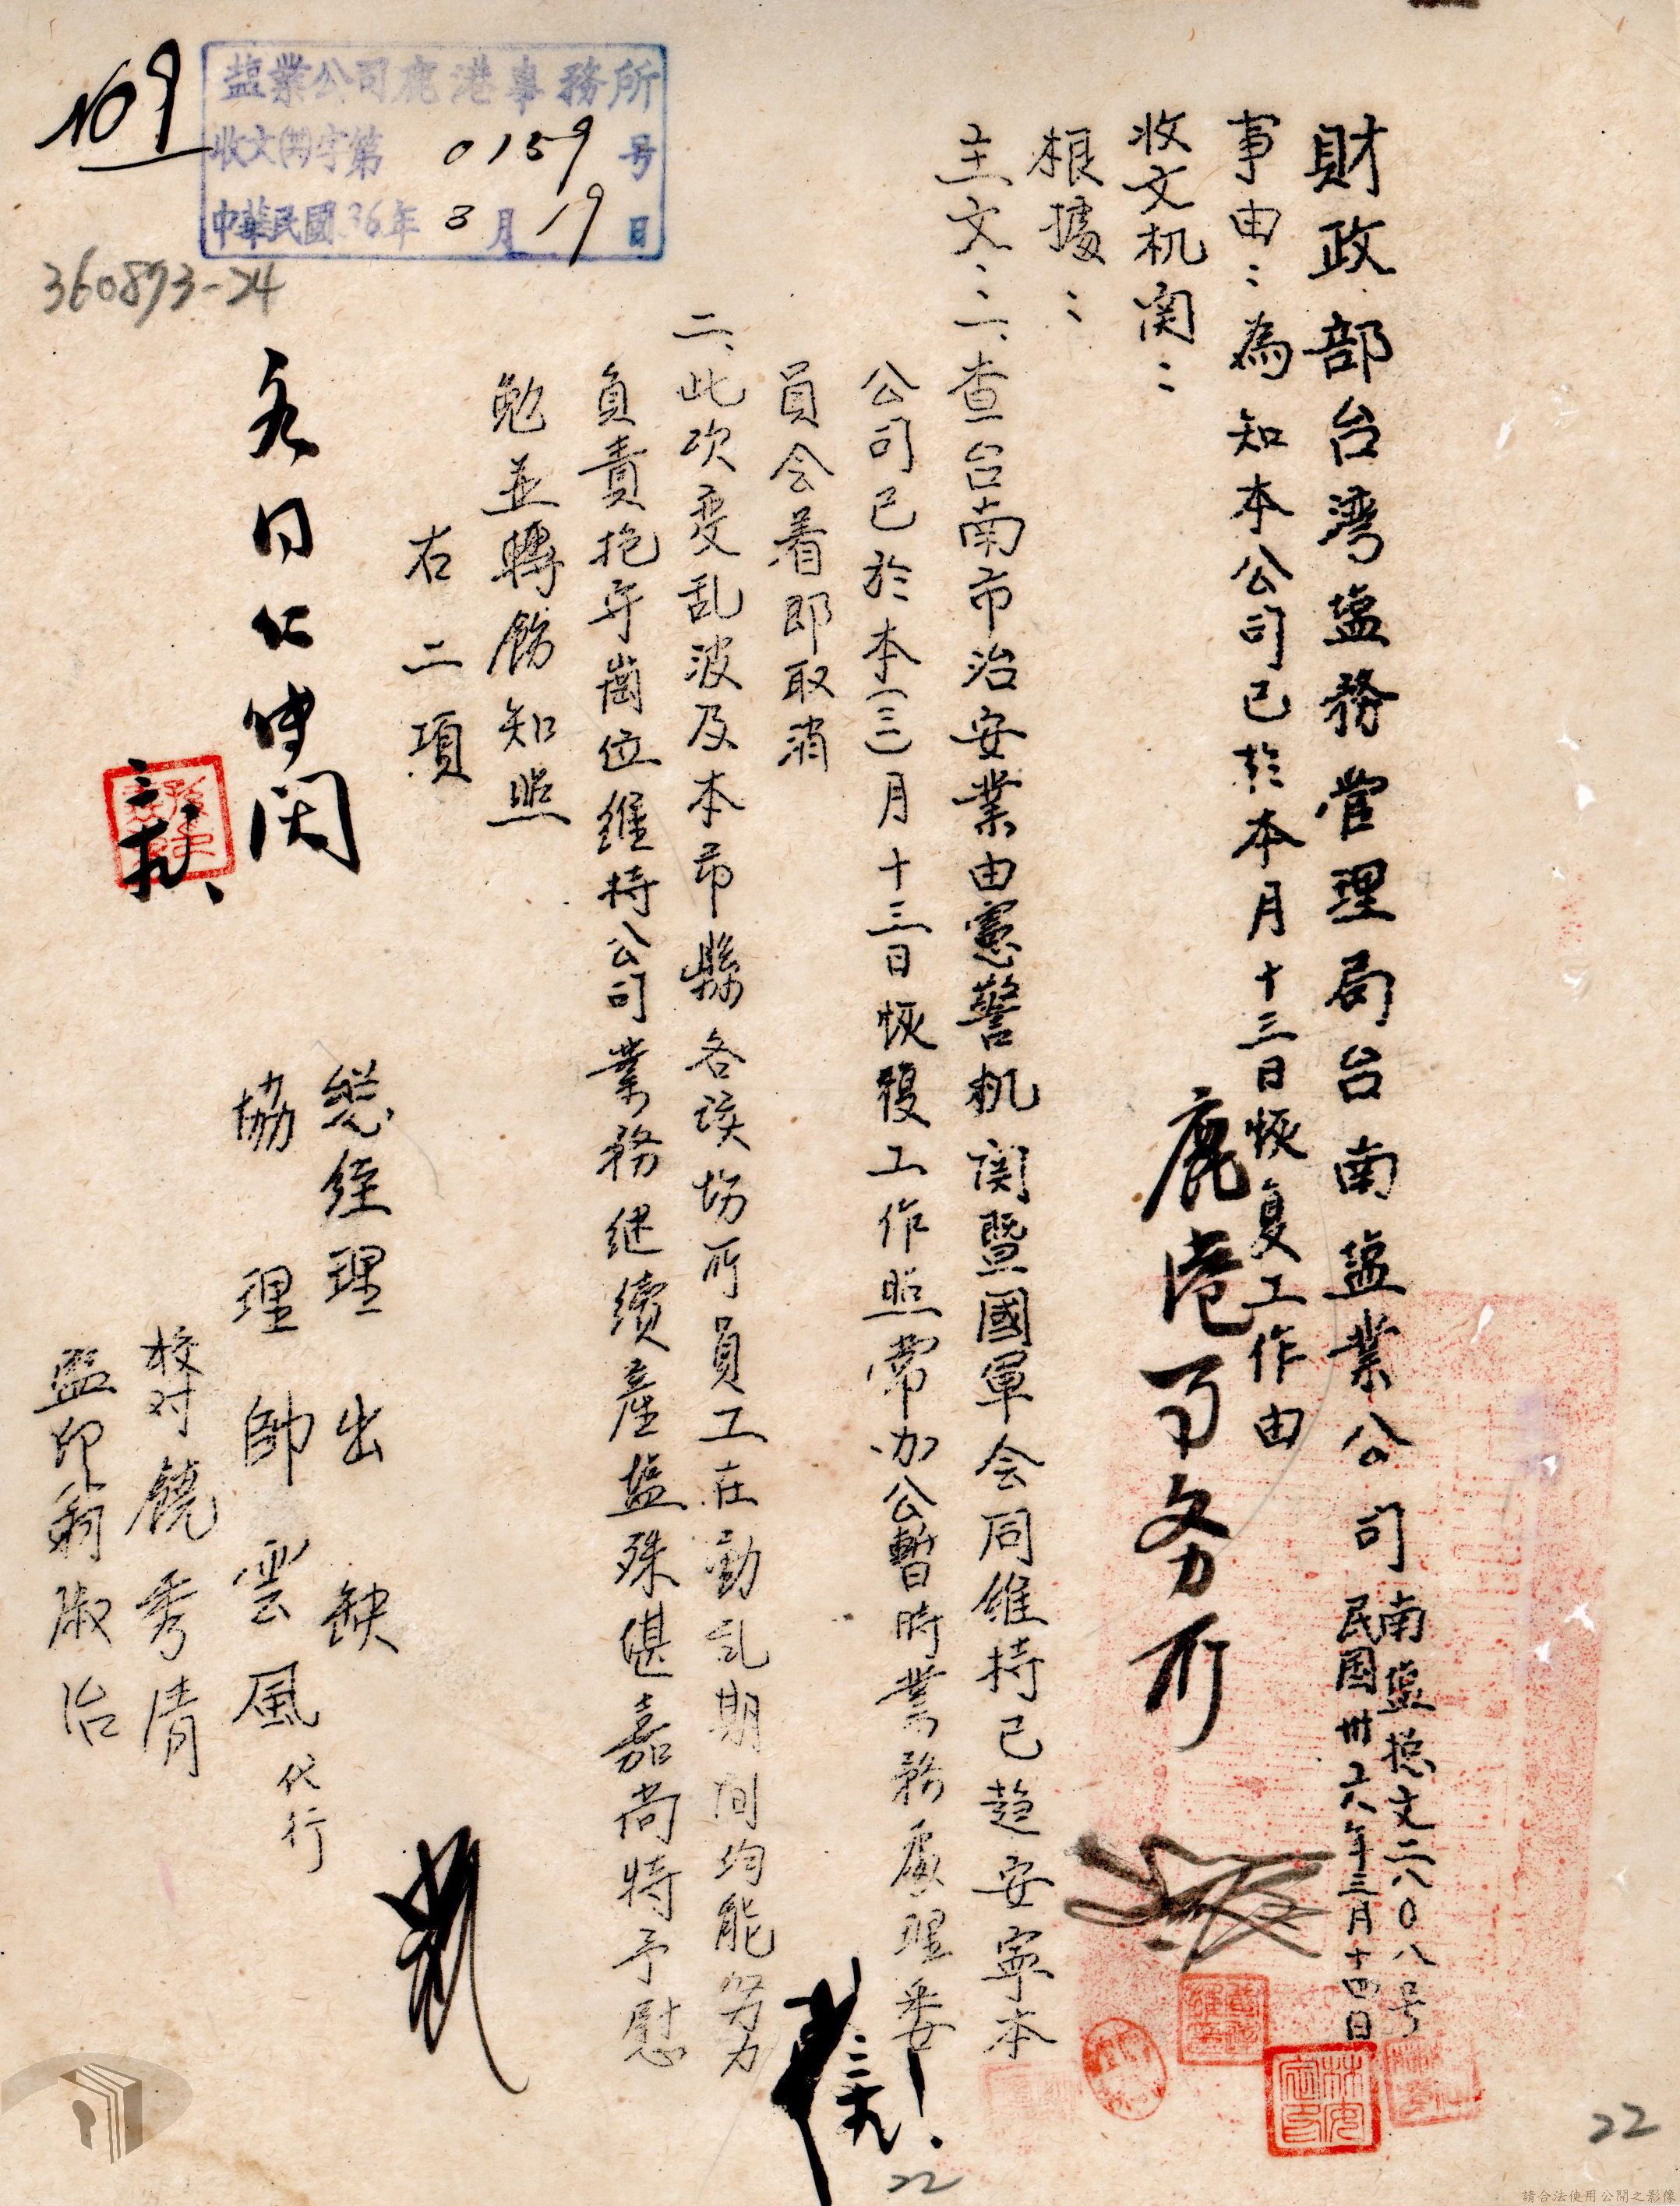 財政部台湾塩務管理局台南塩業公司
南塩總文三六〇八号
民国卅六年三月十四日
事由：為知本公司已於本月十三日恢复工作由
收文机関：鹿港事务所
根據：
主文：一、查台南市治安業由憲警机関暨國軍会同維持已趋安寧本
公司已於本(三)月十三日恢復工作照常办公暫時業務處理委
員会着即取消
二、此次变乱波及本市縣各該場所員工在動乱期间均能努力
負責抱守崗位維持公司業務継續產塩殊堪嘉尚特予慰
勉並轉飭知照
右二項
總经理 出缺
協理 帥雲風 代行
校对 饒秀清
監印 翁淑治
各同仁传阅
三、九
塩業公司鹿港事務所
收文(卅)字第0159号
中華民國36年3月19日
109
360873-24
22
22
請合法使用公開之影像